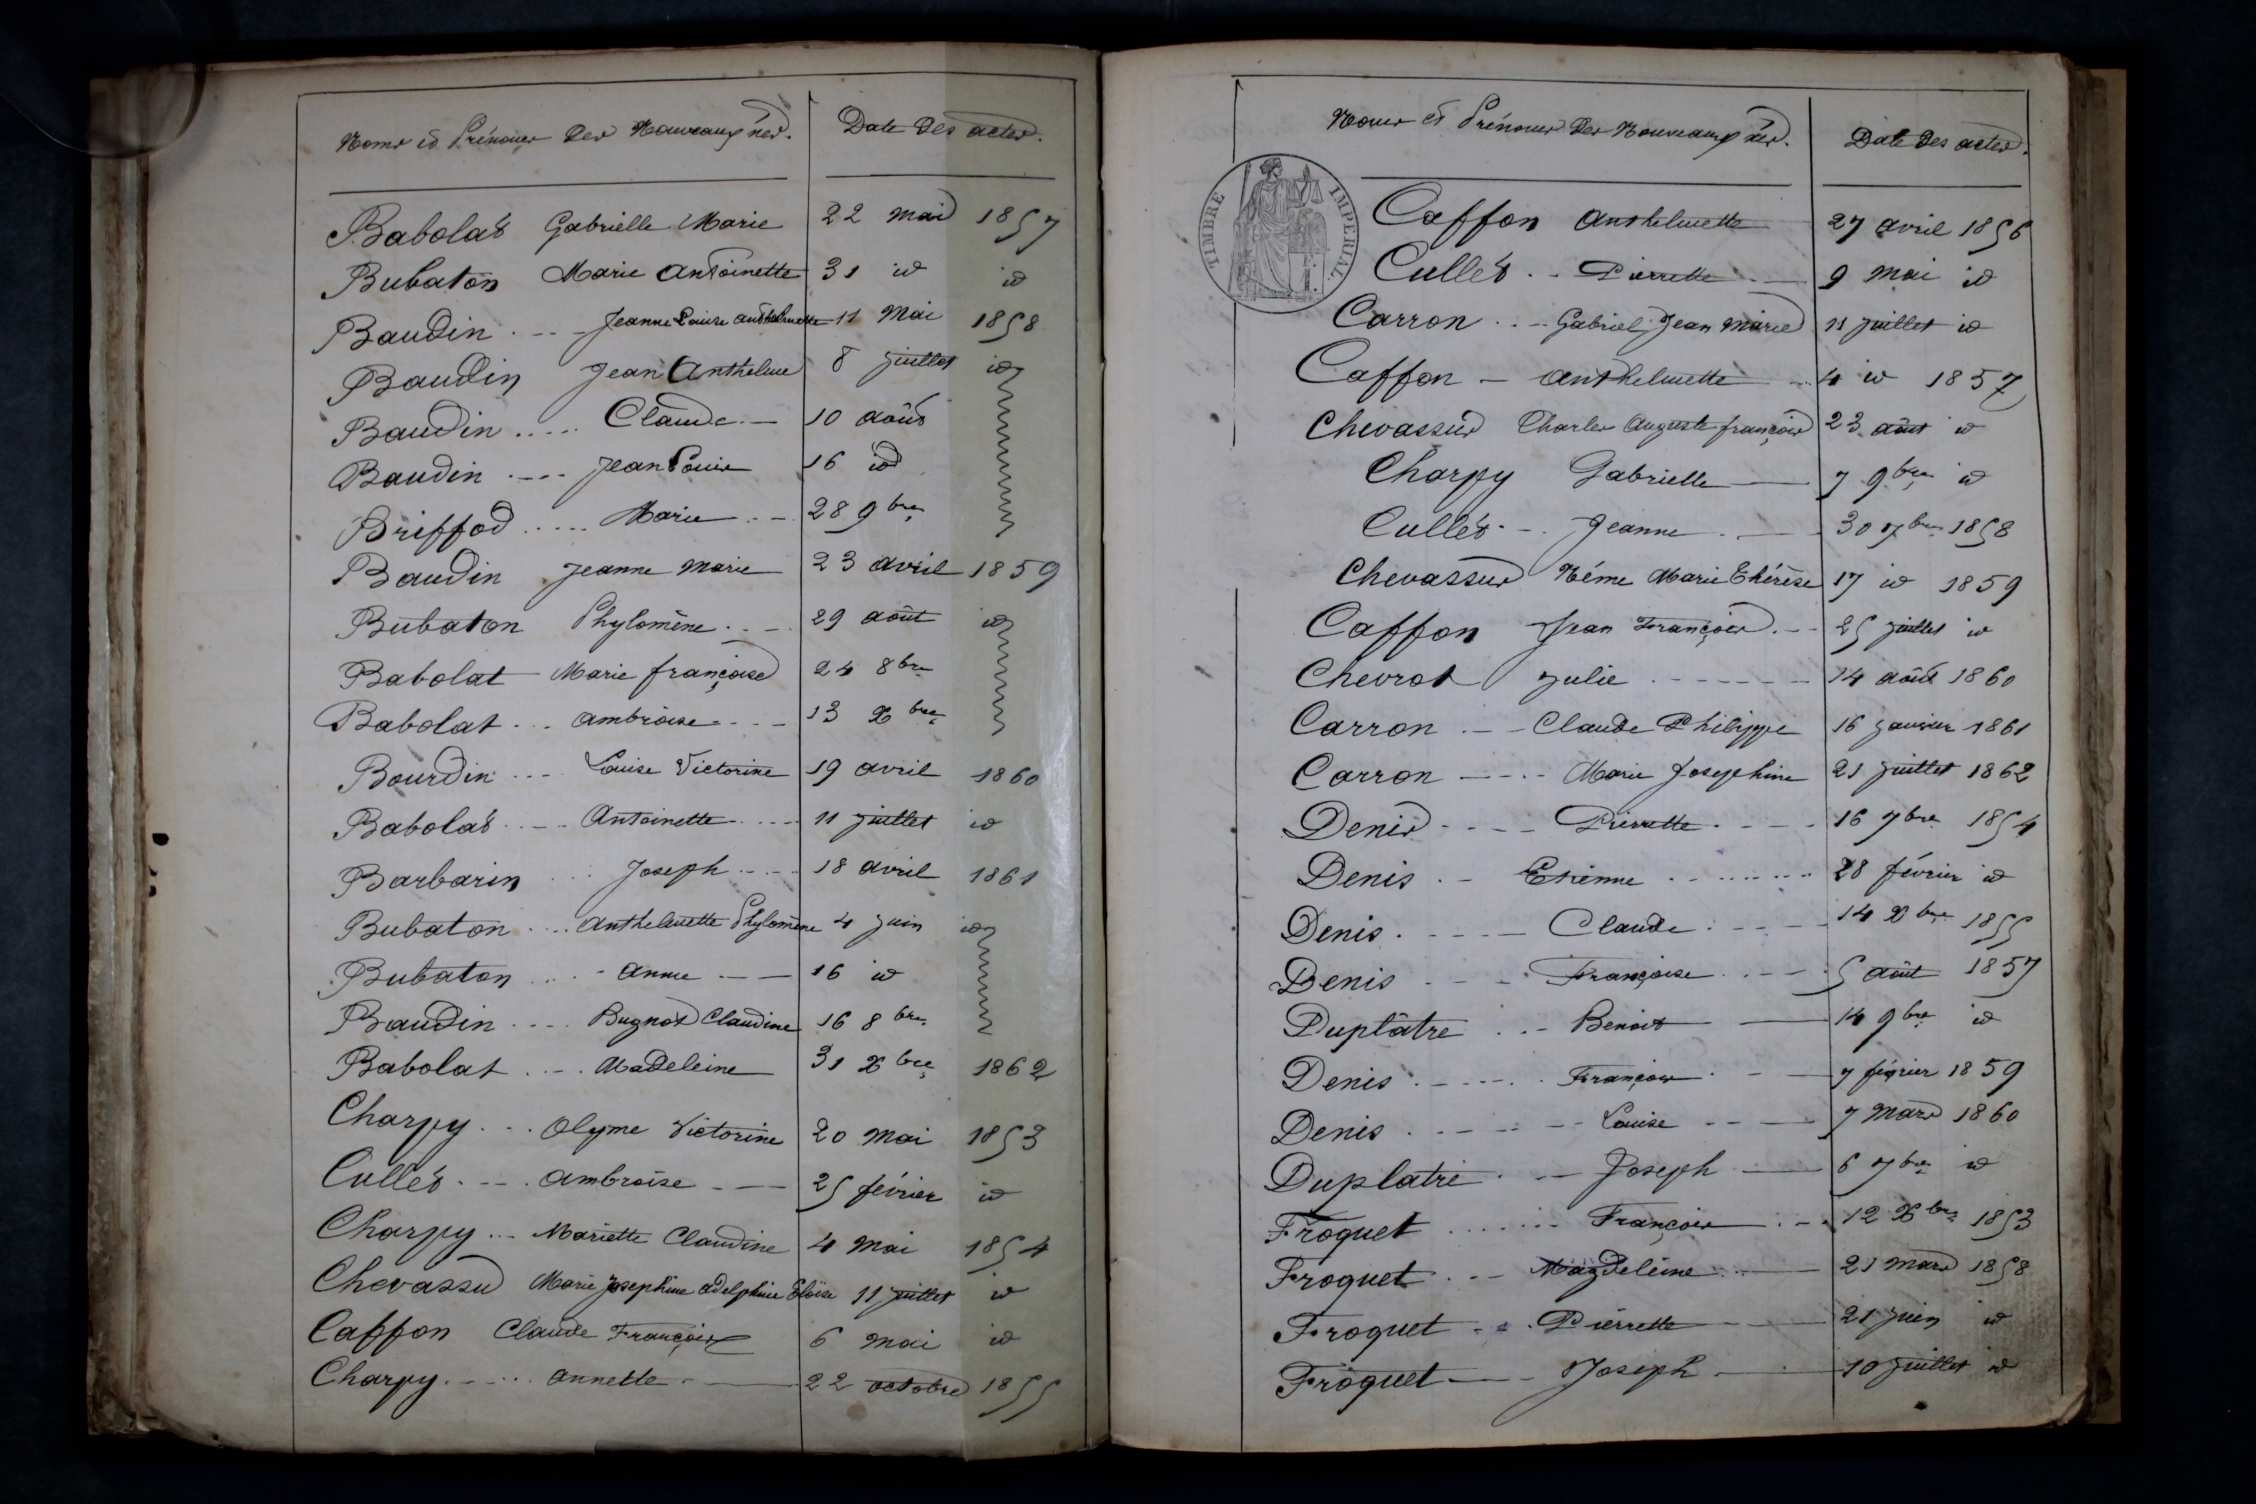 Noms et Prénoms des Nouveaux nés. Date des actes.
Babolat Gabrielle Marie 22 mai 1857
Bubaton Marie Antoinette 31 id id
Baudin Jeanne Louise Anthelmette 11 Mai 1858
Baudin Jean Anthelme 8 juillet id
Baudin Claude 10 août
Baudin Jean Louis 16 id
Briffod Marie 28 9bre
Baudin Jeanne Marie 23 avril 1859
Bubaton Phylomène 29 août id
Babolat Marie françoise 24 8bre
Babolat ambroise 13 Xbre
Bourdin Louise Victorine 19 avril 1860
Babolat Antoinette 11 juillet id
Barbarin Joseph 18 avril 1861
Bubaton Anthelmette Phylomène 4 juin id
Bubaton Anne 16 id
Baudin Bugnot Claudine 16 8bre
Babolat Madeleine 31 Xbre 1862
Charpy Olyme Victorine 20 mai 1853
Cullet Ambroise 25 février id
Charpy Mariette Claudine 4 mai 1854
Chevassu Marie Josephine adelphine Éloïse 11 juillet id
Caffon Claude François 6 mai id
Charpy Annette 22 octobre 1855
Noms et Prénoms des Nouveaux nés. Date des actes.
TIMBRE IMPERIAL
Caffon Anthelmette 27 avril 1856
Cullet Pierrette 9 mai id
Carron Gabriel Jean Marie 11 juillet id
Caffon Anthelmette 4 id 1857
Chevassus Charles Auguste françois 23 août id
Charpy Gabrielle 7 9bre id
Cullet Jeanne 30 7bre 1858
Chevassus Marie Thérèse 17 id 1859
Caffon Jean François 25 juillet id
Chevrot Julie 14 août 1860
Carron Claude Philippe 16 janvier 1861
Carron Marie Josephine 21 juillet 1862
Denis Pierrette 16 7bre 1854
Denis Etienne 28 février id
Denis Claude 14 Xbre 1855
Denis Françoise 5 août 1857
Duplâtre Benoit 14 9bre id
Denis François 7 février 1859
Denis Louise 7 Mars 1860
Duplatre Joseph 6 7bre id
Froquet François 12 Xbre 1853
Froquet Magdeleine 21 mars 1858
Froquet Pierrette 21 juin id
Froquet Joseph 10 juillet id